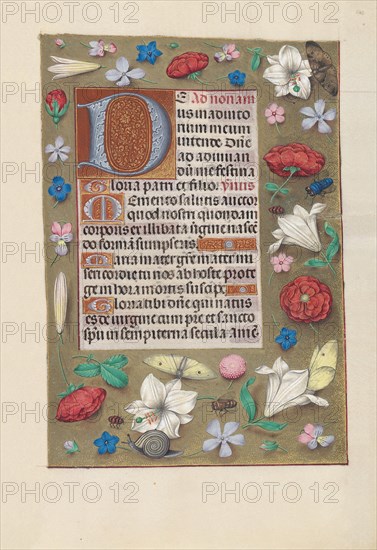 Ad nonam
us in adiuto
rium meum
intende Dne
ad adiuuan
dū me festina
Gloria patri et filio. Ymis
Memento salutis auctor
quod nostri quondam
corporis ex illibata virgine nascē
do formā sumpseris
Maria mater gratie mater mi
sericordie tu nos ab hoste proteg
ge in hora mortis suscipe
Gloria tibi dne qui natus
es de virgine cum pre et sancto
spū in sempiterna secula amē
PHOTO 12